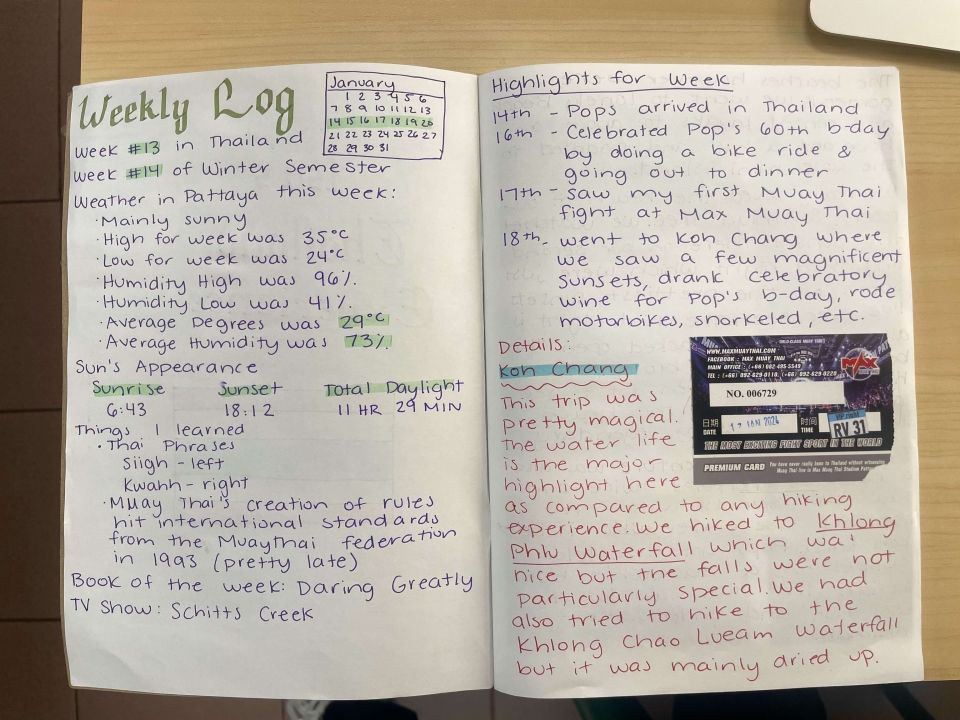 Weekly Log
January
1 2 3 4 5 6
7 8 9 10 11 12 13
14 15 16 17 18 19 20
21 22 23 24 25 26 27
28 29 30 31
Week #13 in Thailand
Week #14 of Winter Semester
Weather in Pattaya this week:
· Mainly sunny
· High for week was 35°C
· Low for week was 24°C
· Humidity High was 96%
· Humidity Low was 41%
· Average Degrees was 29°C
· Average Humidity was 73%
Sun's Appearance
Sunrise Sunset Total Daylight
6:43 18:12 11 HR 29 MIN
Things I learned
· Thai Phrases
Siigh - left
Kwahh - right
· Muay Thai's creation of rules
hit international standards
from the Muaythai federation
in 1993 (pretty late)
Book of the week: Daring Greatly
TV Show: Schitts Creek
Highlights for Week
14th - Pops arrived in Thailand
16th - Celebrated Pop's 60th b-day
by doing a bike ride &
going out to dinner
17th - saw my first Muay Thai
fight at Max Muay Thai
18th - went to Koh Chang where
we saw a few magnificent
sunsets, drank celebratory
wine for Pop's b-day, rode
motorbikes, snorkeled, etc.
Details:
Koh Chang
This trip was
pretty magical.
The water life
is the major
highlight here
as compared to any hiking
experience. We hiked to Khlong
Phlu Waterfall which wa
nice but the falls were not
particularly special. We had
also tried to hike to the
Khlong Chao Lueam waterfall
but it was mainly dried up.
WORLD-CLASS MUAY THAI
WWW.MAXMUAYTHAI.COM
FACEBOOK : MAX MUAY THAI
MAIN OFFICE : (+66) 082-495-5549
TEL : (+66) 092-629-0118, (+66) 092-629-0228
MAX
NO. 006729
日期 DATE 17 JAN 2024 时间 TIME RV 31
THE MOST EXCITING FIGHT SPORT IN THE WORLD
PREMIUM CARD You have never really been to Thailand without witnessing
Muay Thai live in Max Muay Thai Stadium